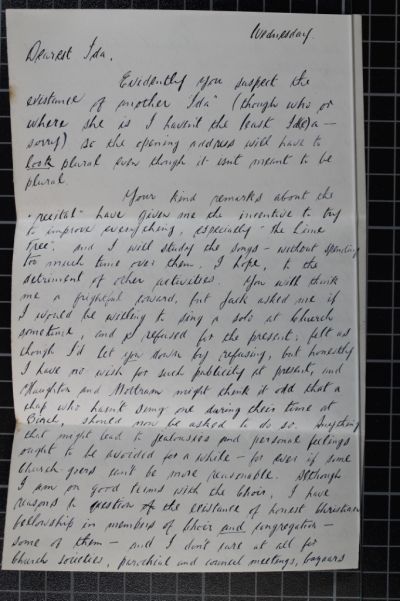 Wednesday.
Dearest Ida,
Evidently you suspect the
existance of another "Ida" (though who or
where she is I haven't the least Id(e)a —
sorry) so the opening address will have to
look plural even though it isn't meant to be
plural.
Your kind remarks about the
"recital" have given me the incentive to try
to improve everything, especially "the Lime
Tree", and I will study the songs - without spending
too much time over them, I hope, to the
detriment of other activities. You will think
me a frightful coward, but Jack asked me if
I would be willing to sing a solo at Church
sometime, and I refused for the present; felt as
though I'd let you down by refusing, but honestly
I have no wish for such publicity at present, and
and Mottram might think it odd that a
chap who hasn't sung one during their time at
should now be asked to do so. Anything
that might lead to jealousies and personal feelings
ought to be avoided for a while - for even if some
Church-goers can't be more reasonable. Although
I am on good terms with the Choir, I have
reasons to question of the existance of honest Christian
fellowship in members of Choir and congregation —
some of them — and I don't care at all for
Church societies, parochial and council meetings, bazaars